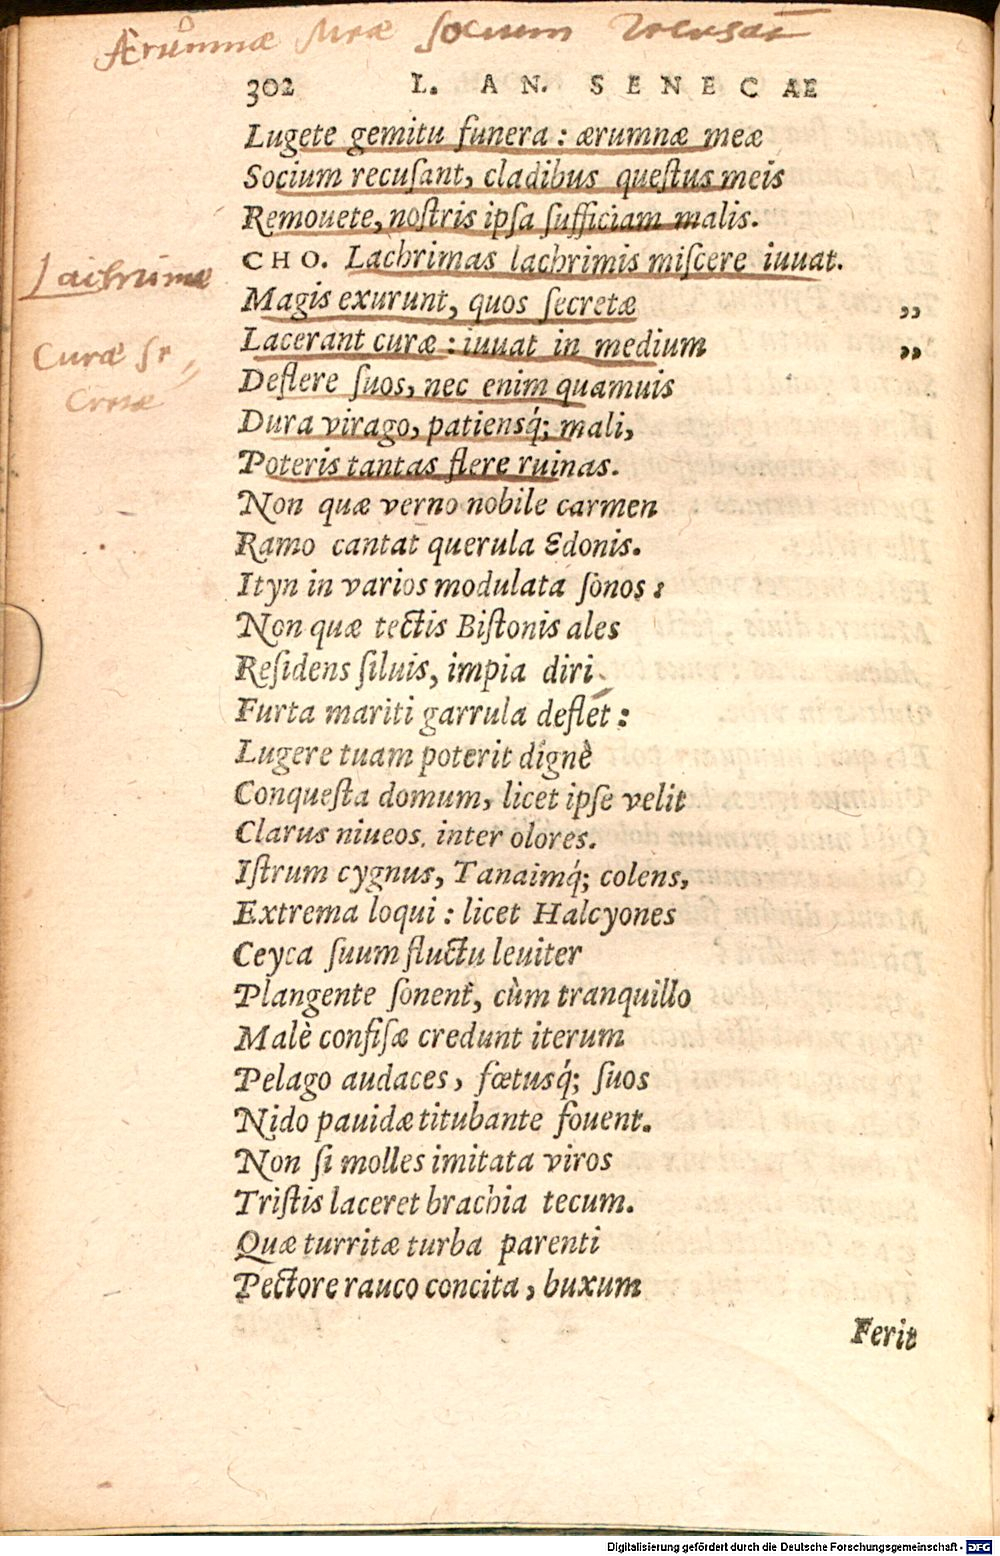 Ærumnæ meæ socium recusāt
302 L. AN. SENECAE
Lugete gemitu funera : ærumnæ meæ
Socium recuſant, cladibus queſtus meis
Remouete, noſtris ipſa ſufficiam malis.
CHO. Lachrimas lachrimis miſcere iuuat.
Lachrimæ
Magis exurunt, quos ſecretæ „
Lacerant curæ : iuuat in medium „
Curæ se
cretæ
Deflere ſuos, nec enim quamuis
Dura virago, patiensq́; mali,
Poteris tantas flere ruinas.
Non quæ verno nobile carmen
Ramo cantat querula Edonis.
Ityn in varios modulata ſonos :
Non quæ tectis Biſtonis ales
Reſidens ſiluis, impia diri
Furta mariti garrula deflet :
Lugere tuam poterit dignè
Conqueſta domum, licet ipſe velit
Clarus niueos. inter olores.
Iſtrum cygnus, Tanaimq́; colens,
Extrema loqui : licet Halcyones
Ceyca ſuum fluctu leuiter
Plangente ſonent, cùm tranquillo
Malè confiſæ credunt iterum
Pelago audaces, fœtusq́; ſuos
Nido pauidæ titubante fouent.
Non ſi molles imitata viros
Triſtis laceret brachia tecum.
Quæ turritæ turba parenti
Pectore rauco concita, buxum
Ferit
Digitalisierung gefördert durch die Deutsche Forschungsgemeinschaft - DFG